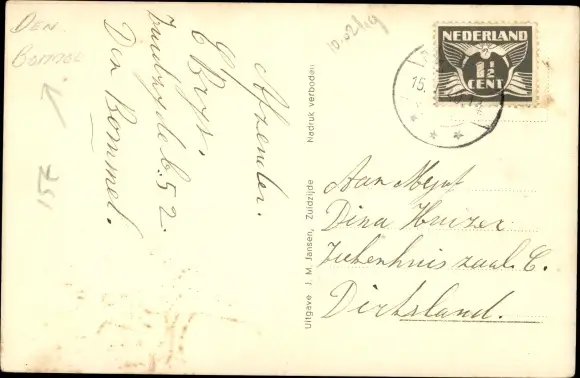 DEN
Bommel
15t
10.02119
Afzender.
C Brys.
Zuidzyde b. 52.
Den Bommel.
Uitgave J. M. Jansen, Zuidzijde Nadruk verboden
NEDERLAND
1½
CENT
15.
Aan Mejut
Dina Huizer
Ziekenhuis zaal. C.
Dirksland.